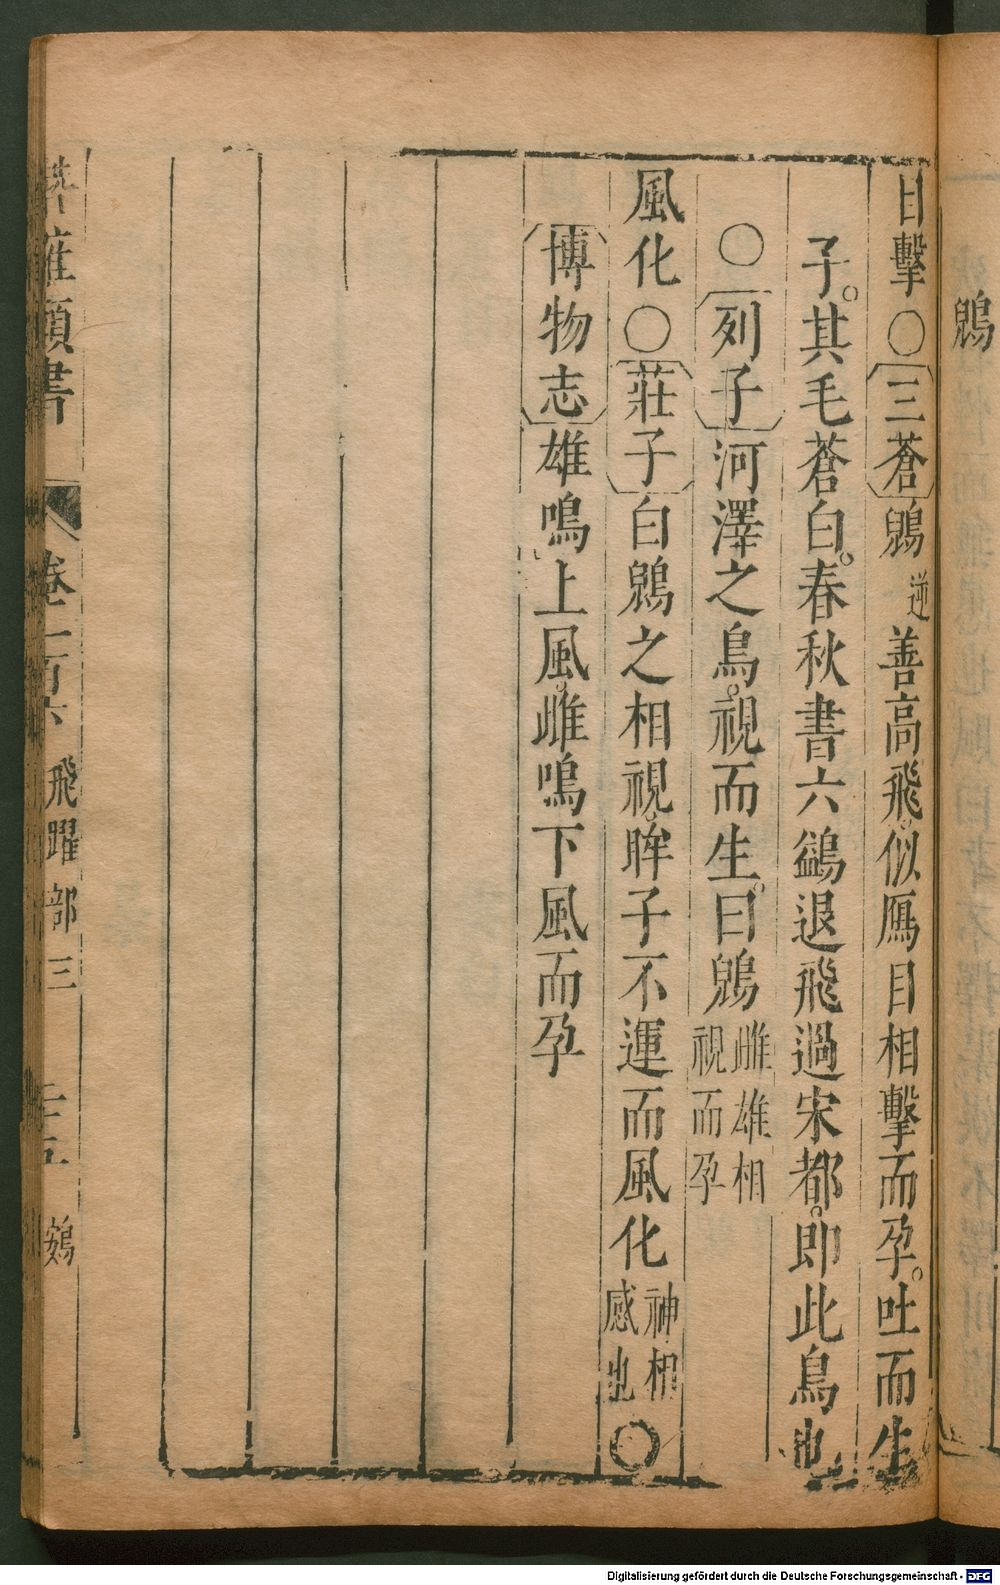 鶂
目擊○三蒼鶂逆善高飛。似鴈目相擊而孕。吐而生
子。其毛蒼白。春秋書六鷁退飛過宋都。即此鳥也
○列子河澤之鳥。視而生。曰鶂雌雄相視而孕
風化○莊子白鶂之相視。眸子不運而風化神相感也○
博物志雄鳴上風。雌鳴下風而孕
雅類書 卷一百六 飛躍部三 二十五 鷄
Digitalisierung gefördert durch die Deutsche Forschungsgemeinschaft - DFG